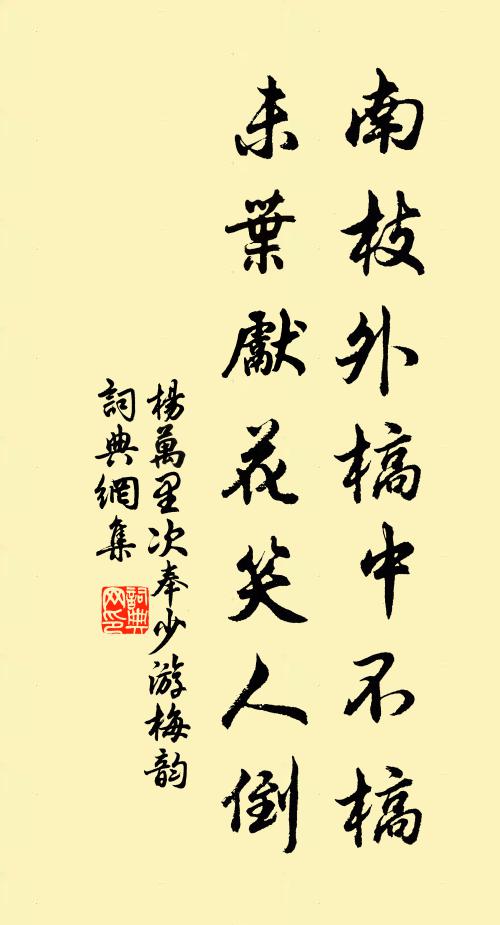 南枝外槁中不槁
未葉獻花笑人倒
楊萬里次奉少游梅韵
詞典網集
詞典网印